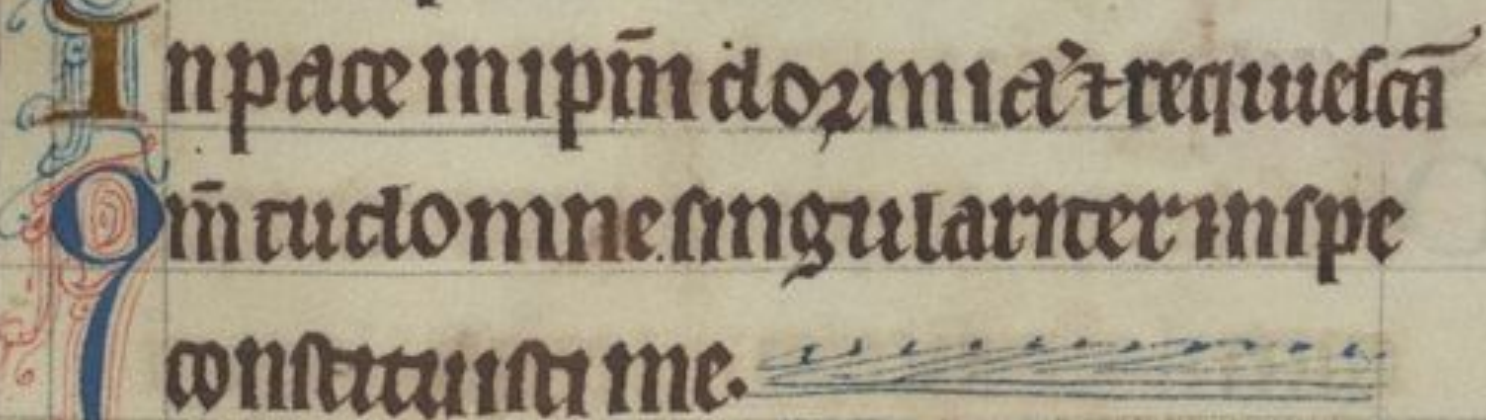 In pace in ipm̄ dormiā ⁊ requiescā
Qm̄ tu domine singulariter in spe
constituisti me.